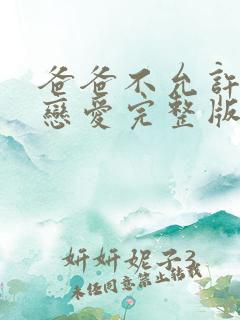 爸爸不允許
戀愛完整版
妍妍妮子3
未任同意禁止轉載